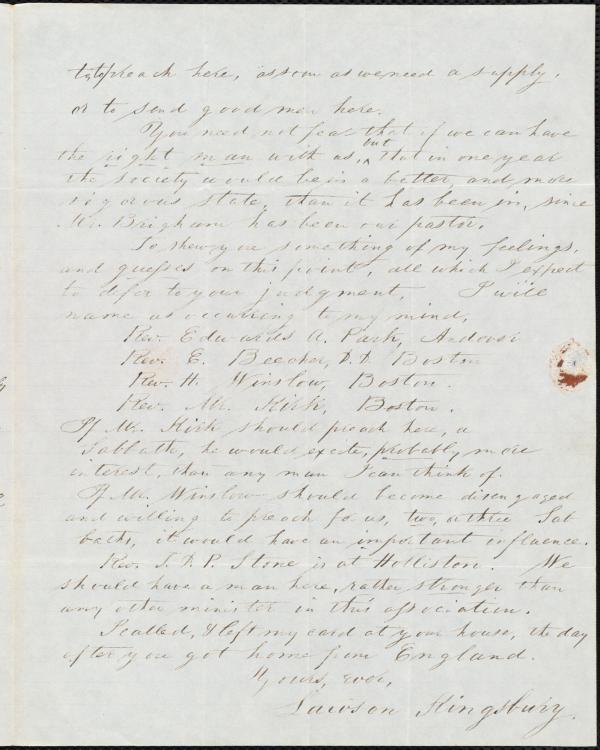 to preach here, as soon as we need a supply,
or to send good men here.
You need not fear that if we can have
the right man with us, but that in one year
the society would be in a better and more
vigorous state, than it has been in, since
Mr. Brigham has been our pastor.
To shew you something of my feelings,
and guesses on this point, all which I expect
to defer to your judgment, I will
name as occurring to my mind,
Rev. Edwards A. Park, Andover
Rev. E. Beecher, D.D. Boston
Rev. H. Winslow, Boston.
Rev. Mr. Kirk, Boston.
If Mr. Kirk should preach here, a
Sabbath, he would excite, probably, more
interest, than any man I can think of.
If Mr. Winslow should become disengaged
and willing to preach for us, two, or three Sab
baths, it would have an important influence.
Rev. T. D. P. Stone is at Holliston. We
should have a man here, rather stronger than
any other minister in this association.
I called, & left my card at your house, the day
after you got home from England.
Yours, ever,
Lawson Kingsbury.